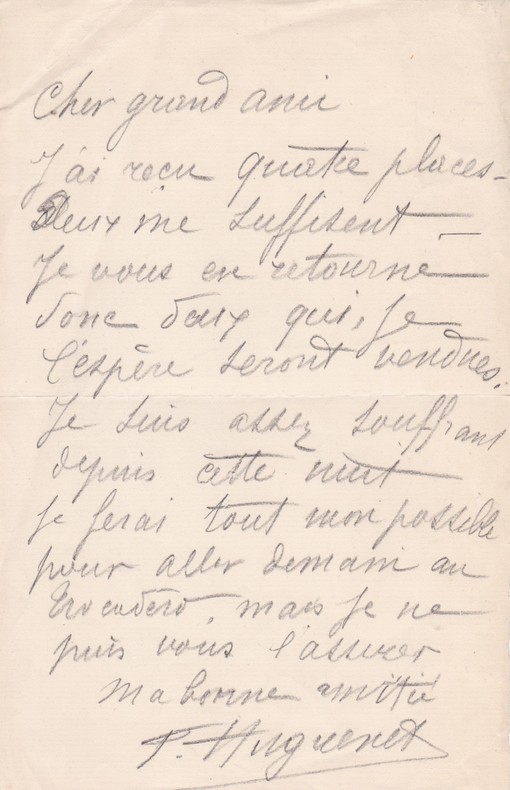 Cher grand ami
J'ai reçu quatre places -
Deux me suffisent -
Je vous en retourne
donc deux qui, je
l'espère seront vendues.
Je suis assez souffrant
depuis cette nuit
je ferai tout mon possible
pour aller demain au
Trocadéro, mais je ne
puis vous l'assurer
Ma bonne amitié
F. Huguenet